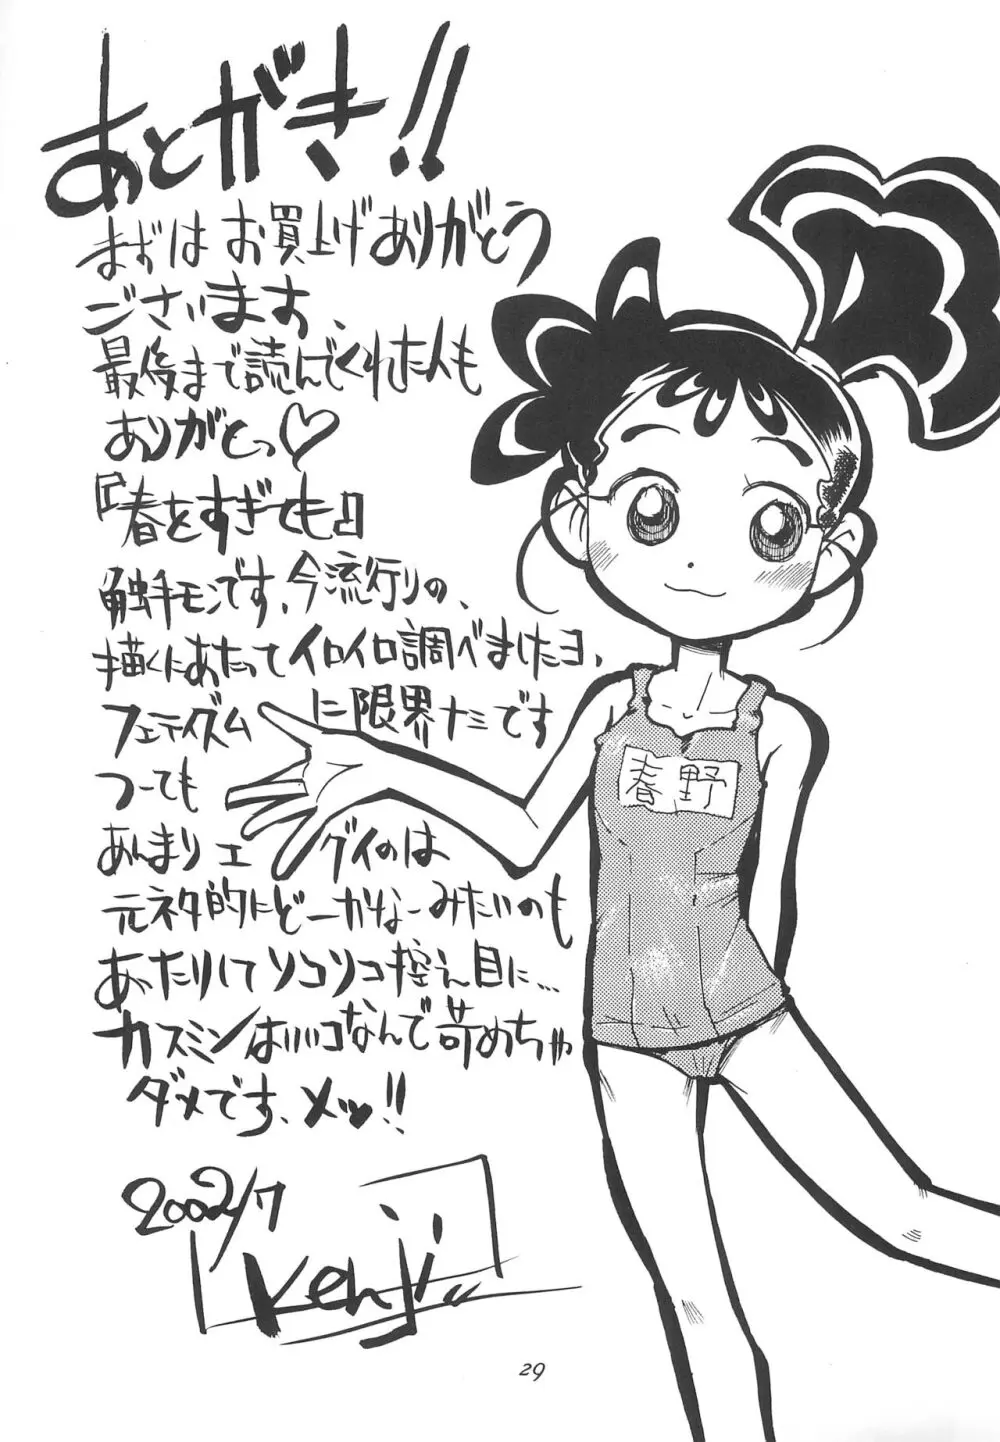 あとがき!!
まずはお買上げありがとう
ございます、
最後まで読んでくれた人も
ありがとっ♡
『春をすぎても』
触手モンです、今流行りの、
描くにあたってイロイロ調べましたヨ、
フェティズム に限界ナミです
つーても
あんまりエ グイのは
元ネタ的にどーかなーみたいのも
あったりしてソコソコ控え目に…
カスミンはいいコなんで苛めちゃ
ダメです、メッ!!
2002/7
Kenji
春野
29